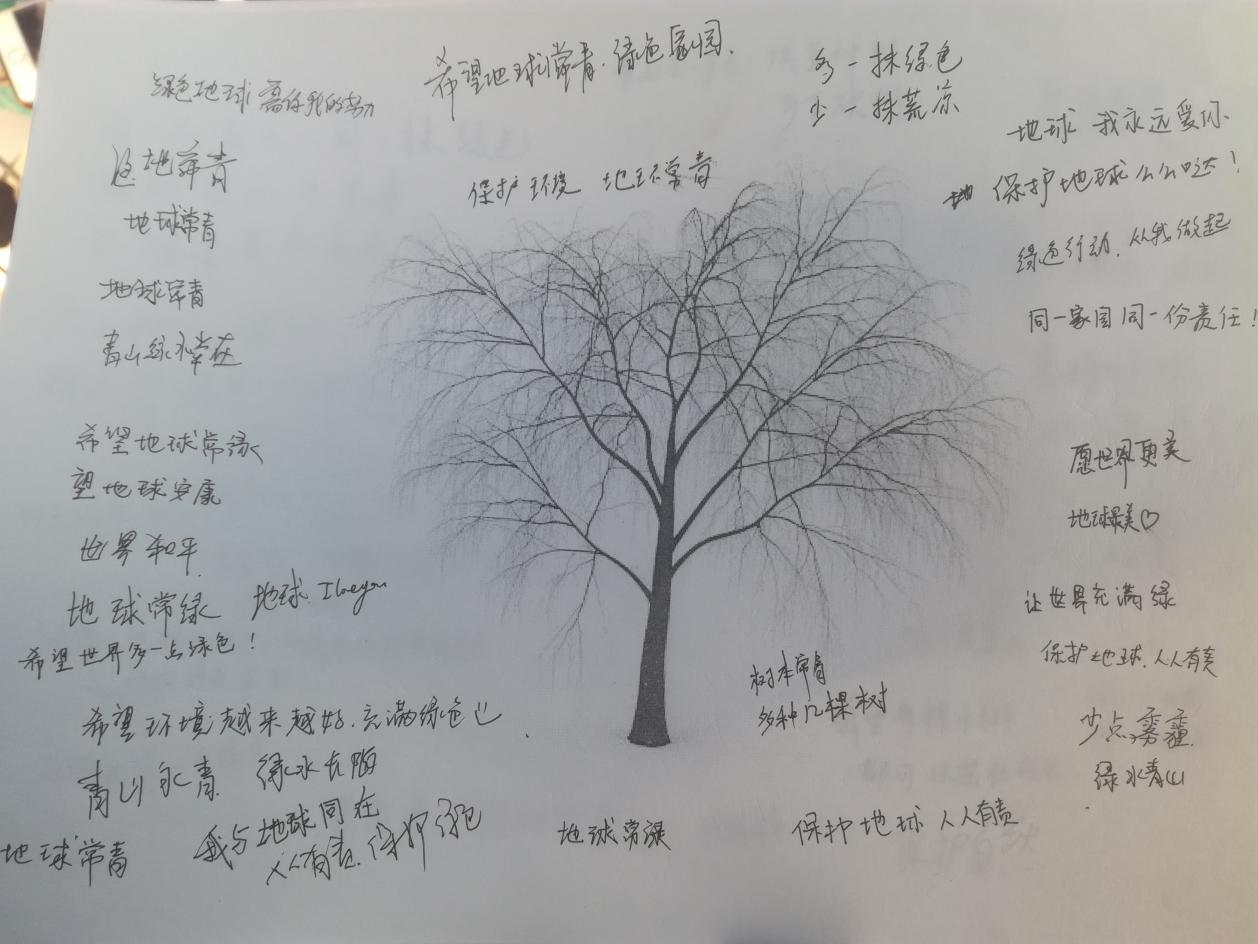 希望地球常青.绿色家园.
多一抹绿色
少一抹荒凉
绿色地球需你我的努力
地球 我永远爱你
保护地球么么哒!
地常青
保护环境 地环常青
地球常青
绿色行动.从我做起
地球常青
同一家园同一份责任!
青山绿水常在
希望地球常绿
望地球安康
愿世界更美
地球最美♡
世界和平.
地球常绿
地球.I love you
让世界充满绿
希望世界多一点绿色!
保护地球.人人有责
树木常青
多种几棵树
希望环境越来越好.充满绿色
少点雾霾.
绿水青山
青山永青. 绿水
我与地球同在
人人有责.保护绿色
地球常青
地球常绿
保护地球人人有责